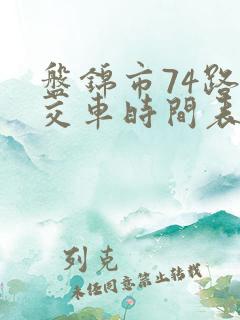 盤錦市74路
交車時間表
列克
未经同意禁止转载